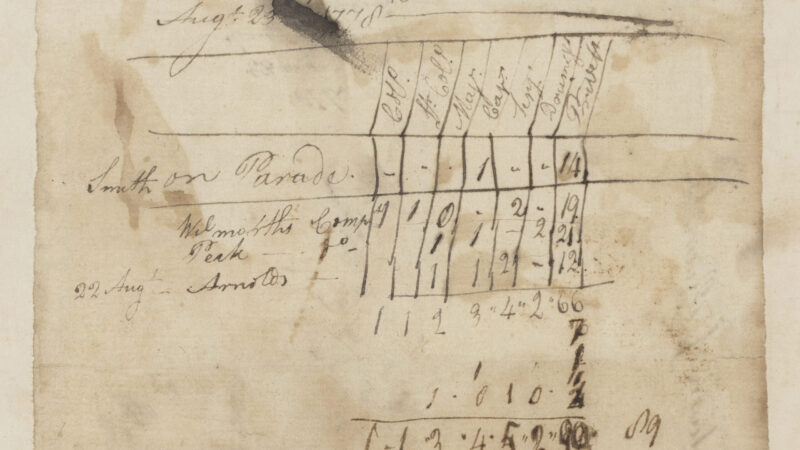 Augt. 23 1778
Coll. Lt. Coll. Majr. Cap. Serj. Drumrs Privets
Smith on Parade. - - - 1 - - 14
Wilmorths Compy 1 1 0 - 2 - 19
Peck Do - 1 1 - 2 21
22 Augt - Arnolds - 1 1 1 2 - 12
1 1 2 3 " 4 " 2 " 66
7
1
1 - 0 1 0 -
1 - 1 - 3 " 4 " 5 " 2 " 90 89